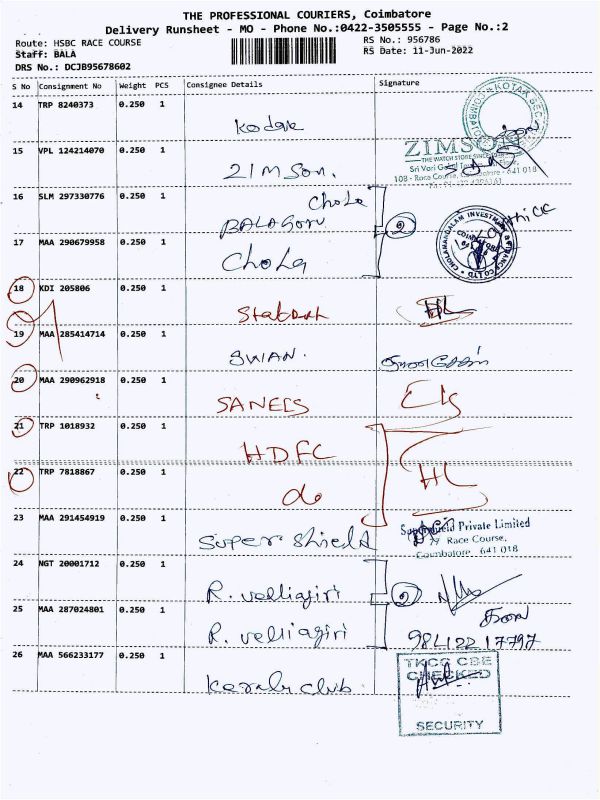 THE PROFESSIONAL COURIERS, Coimbatore
Delivery Runsheet - MO - Phone No.:0422-3505555 - Page No.:2
Route: HSBC RACE COURSE
RS No.: 956786
Staff: BALA
RS Date: 11-Jun-2022
DRS No.: DCJB95678602
S No Consignment No Weight PCS Consignee Details Signature
14 TRP 8240373 0.250 1
Kodak
KOTAK SEC
15 VPL 124214070 0.250 1
ZIMSON
THE WATCH STORE SINCE
Zimson.
Sri Vari
108 - Race Course, Coimbatore - 641 018
16 SLM 297330776 0.250 1
Chola
BALAGURU
2
17 MAA 290679958 0.250 1
Chola
CHOLAMANDALAM INVESTMENT & FINANCE CO LTD
COIMBATORE
18 KDI 205806 0.250 1
19 MAA 285414714 0.250 1
SWAN.
20 MAA 290962918 0.250 1
SANELS
21 TRP 1018932 0.250 1
HDFC
22 TRP 7818867 0.250 1
do
HL
23 MAA 291454919 0.250 1
Super Shield
Supershield Private Limited
Race Course,
Coimbatore, 641 018
24 NGT 20001712 0.250 1
R. velliagiri
2
25 MAA 287024801 0.250 1
R. velliagiri
26 MAA 566233177 0.250 1
Kerala club.
TKCC CBE
CHECKED
SECURITY